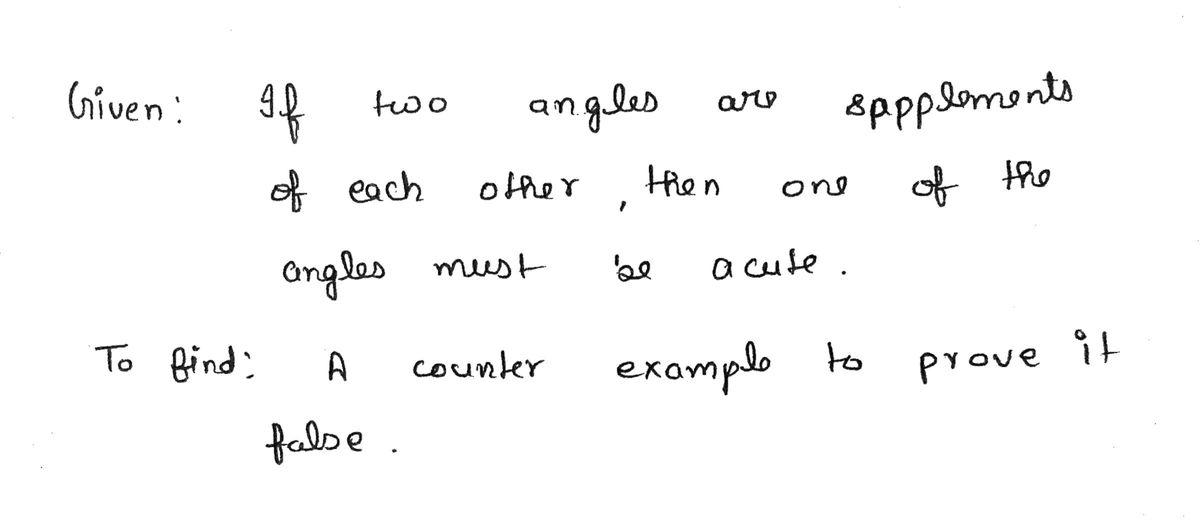 Given: If two angles are sapplements
of each other, then one of the
angles must be acute.
To find: A counter example to prove it
false.